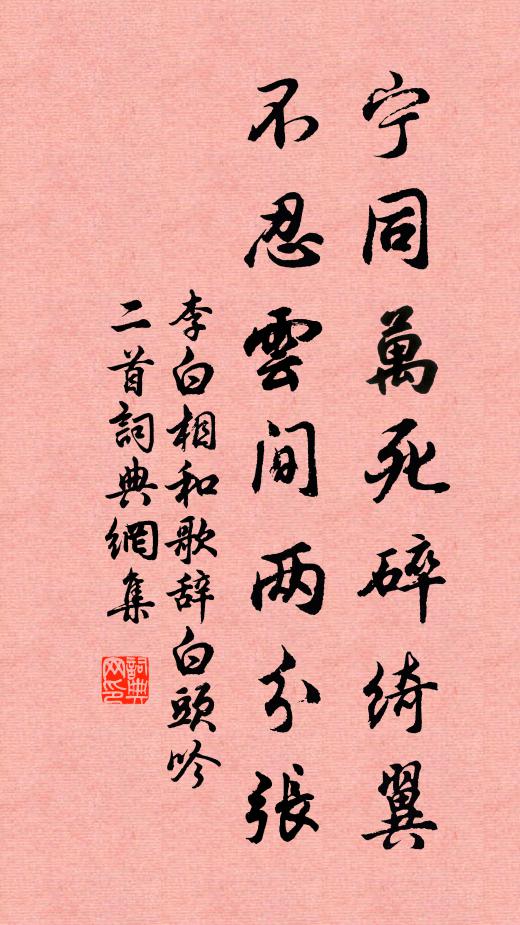 宁同萬死碎綺翼
不忍雲间两分張
李白相和歌辞白頭吟
二首詞典網集
詞典
网印